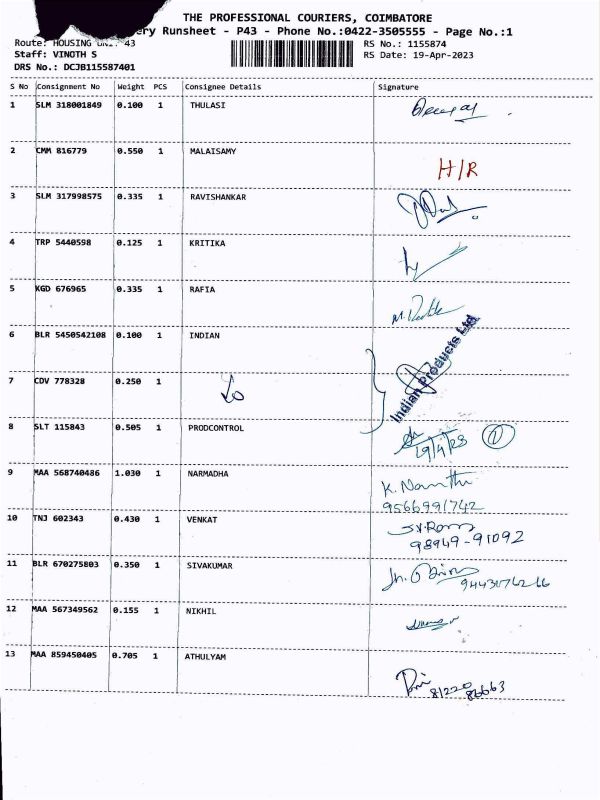 THE PROFESSIONAL COURIERS, COIMBATORE
Runsheet - P43 - Phone No.:0422-3505555 - Page No.:1
Route: HOUSING 43
RS No.: 1155874
Staff: VINOTH S
RS Date: 19-Apr-2023
DRS No.: DCJB115587401
S No Consignment No Weight PCS Consignee Details Signature
1 SLM 318001849 0.100 1 THULASI
2 CMM 816779 0.550 1 MALAISAMY H/R
3 SLM 317998575 0.335 1 RAVISHANKAR
4 TRP 5440598 0.125 1 KRITIKA
5 KGD 676965 0.335 1 RAFIA
6 BLR 5450542108 0.100 1 INDIAN
Indian Products Ltd
7 CDV 778328 0.250 1
8 SLT 115843 0.505 1 PRODCONTROL
19/4/23 1
9 MAA 568740486 1.030 1 NARMADHA
9566991742
10 TNJ 602343 0.430 1 VENKAT
98949-91092
11 BLR 670275803 0.350 1 SIVAKUMAR
12 MAA 567349562 0.155 1 NIKHIL
13 MAA 859450405 0.705 1 ATHULYAM